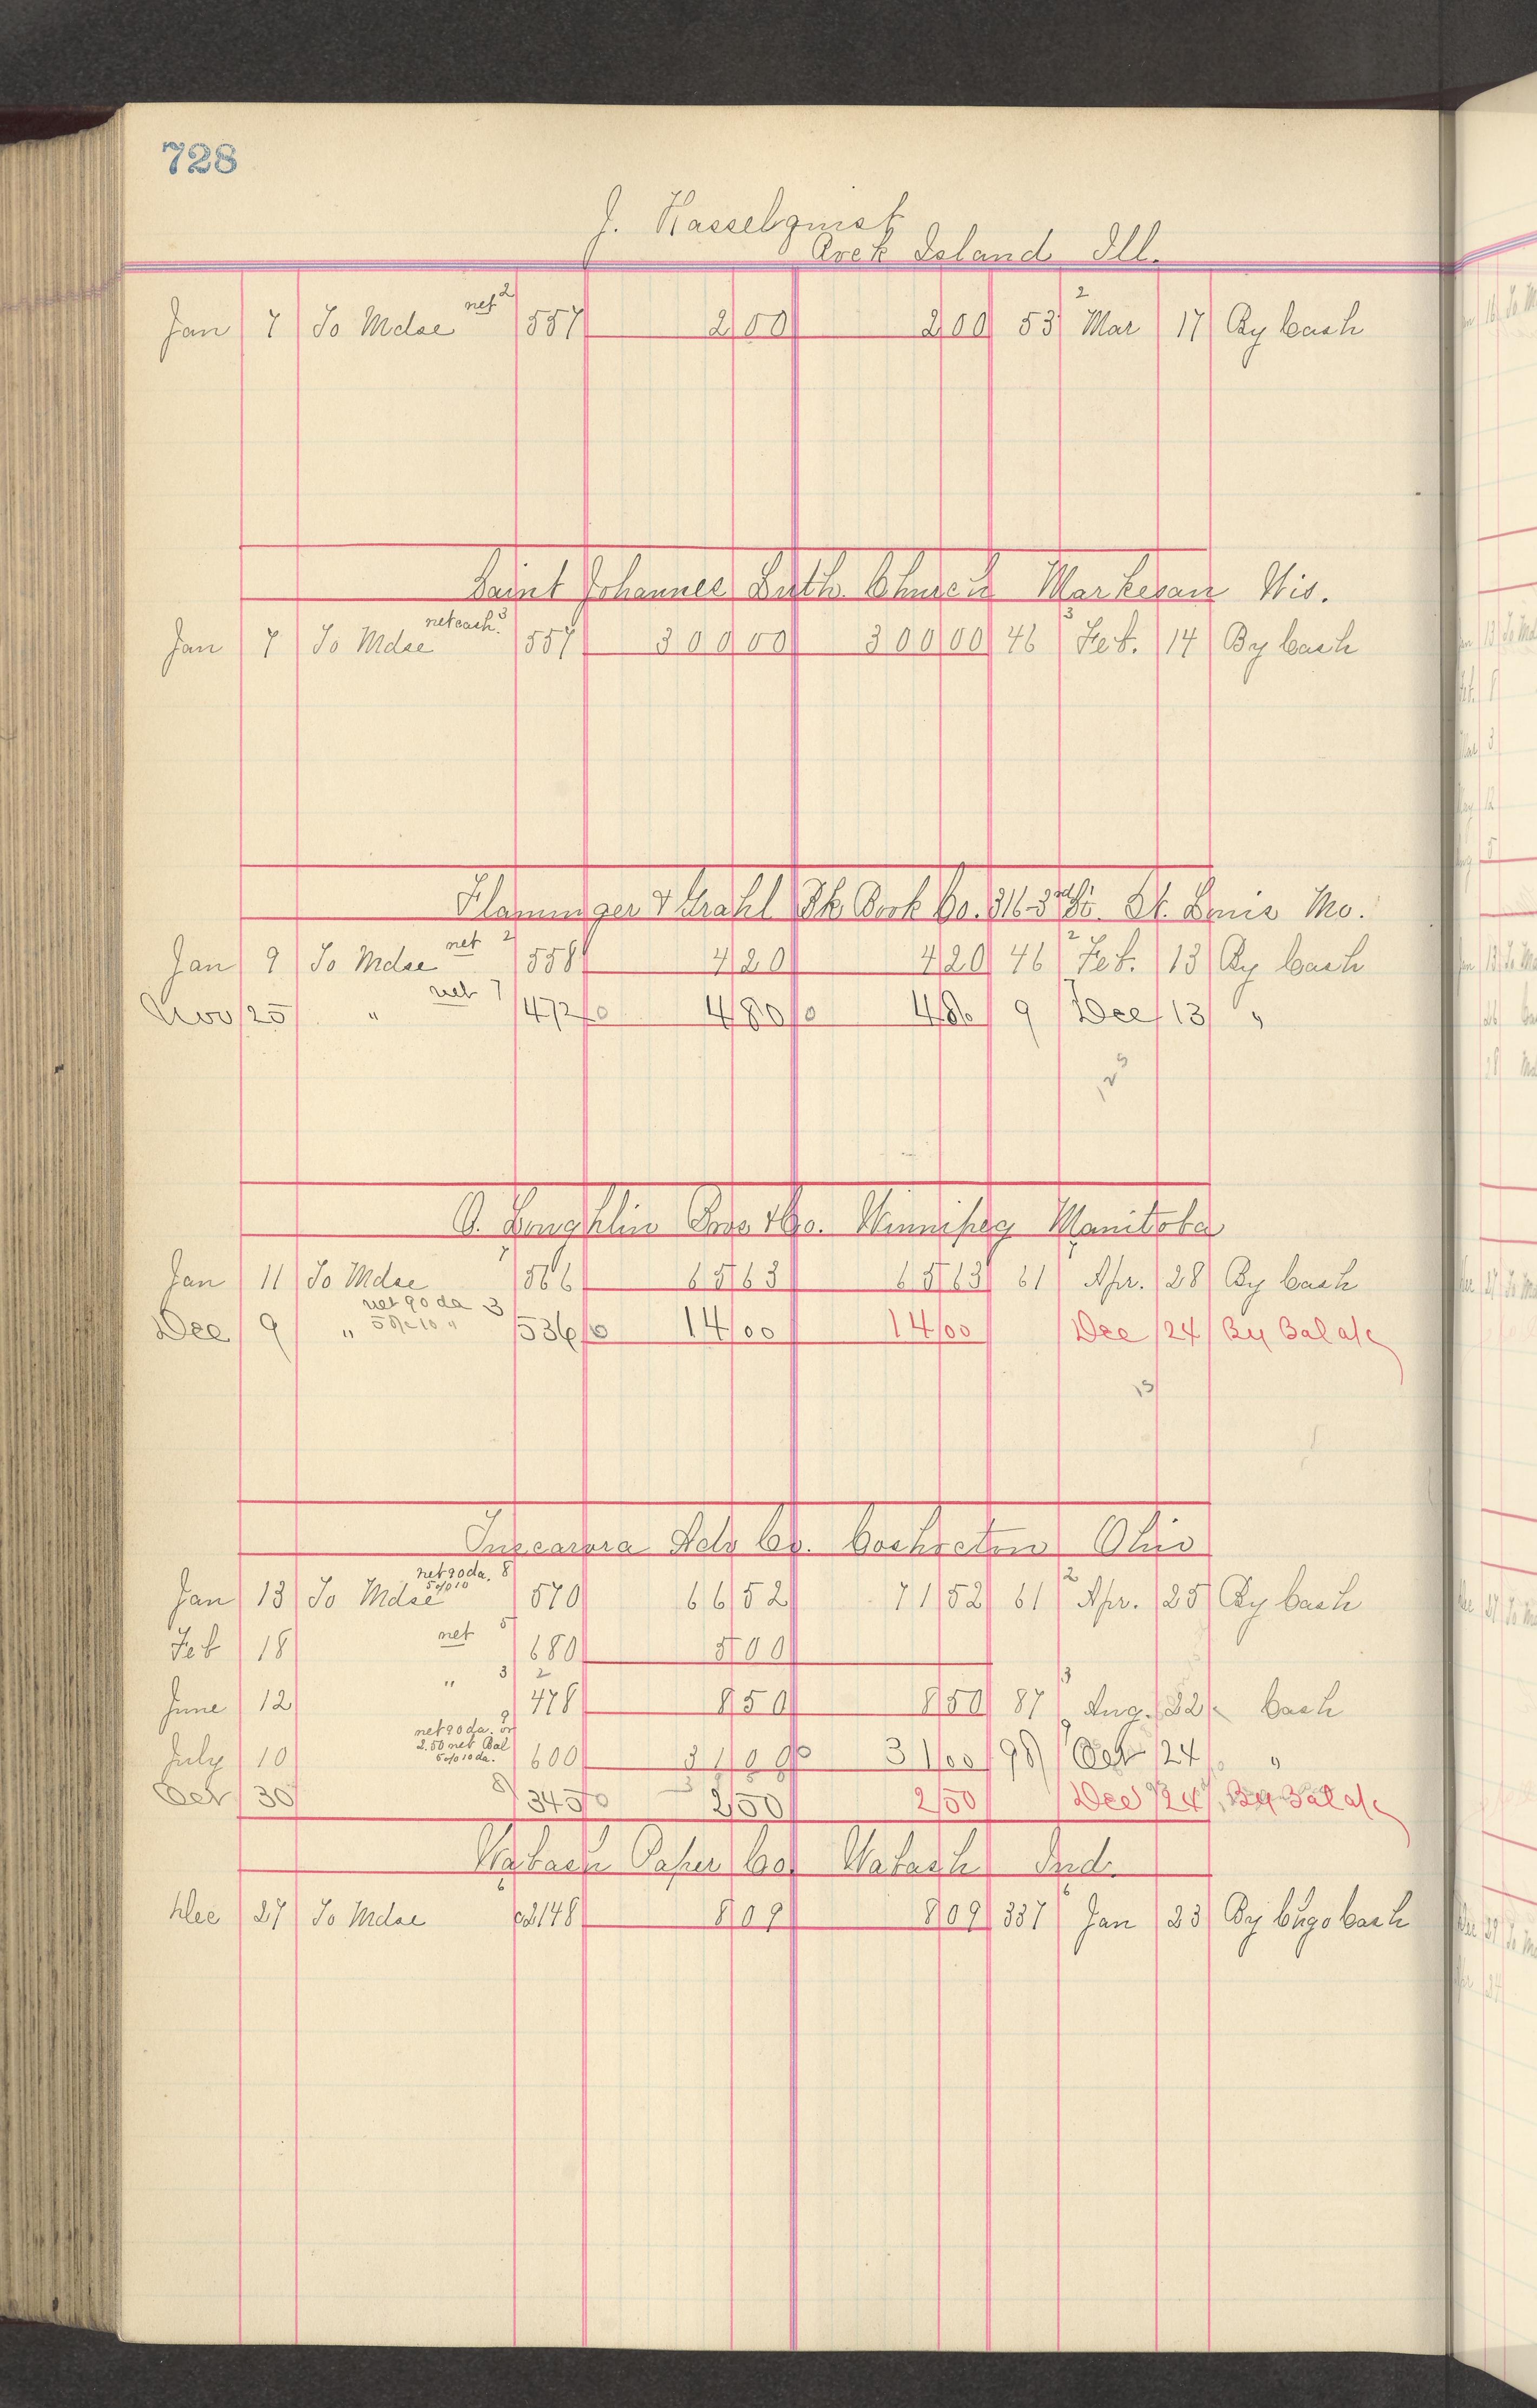 728
J. Hasselquist
Rock Island Ill.
Jan 7 To Mdse net 2 557 2 00 2 00 53 2 Mar 17 By Cash
Saint Johannes Luth. Church Markesan Wis.
Jan 7 To Mdse net cash 3 557 300 00 300 00 46 3 Feb. 14 By Cash
St. Louis Mo.
Jan 9 To Mdse net 2 558 4 20 4 20 46 2 Feb. 13 By Cash
Nov 25 " net 7 472 4 80 4 80 9 Dec 13 "
Bros & Co. Winnipeg Manitoba
Jan 11 To Mdse 7 566 65 63 65 63 61 Apr. 28 By Cash
net 90 da 3
Dec 9 " 5% 10 " 536 14 00 14 00 Dec 24 By Bal a/c
Tuscarora Adv Co. Coshocton Ohio
net 90 da. 8
Jan 13 To Mdse 5% 10 570 66 52 71 52 61 2 Apr. 25 By Cash
Feb 18 net 5 680 5 00
June 12 " 3 2 478 8 50 8 50 87 3 Aug. 22 Cash
net 90 da. or
July 10 2.50 net Bal 600 31 00 31 00 98 Oct 24 "
5% 10 da.
Oct 30 8 345 2 50 2 50 Dec 24 By Bal a/c
Wabash Paper Co. Wabash Ind.
Dec 27 To Mdse 6 2148 8 09 8 09 337 6 Jan 23 By Chgo Cash